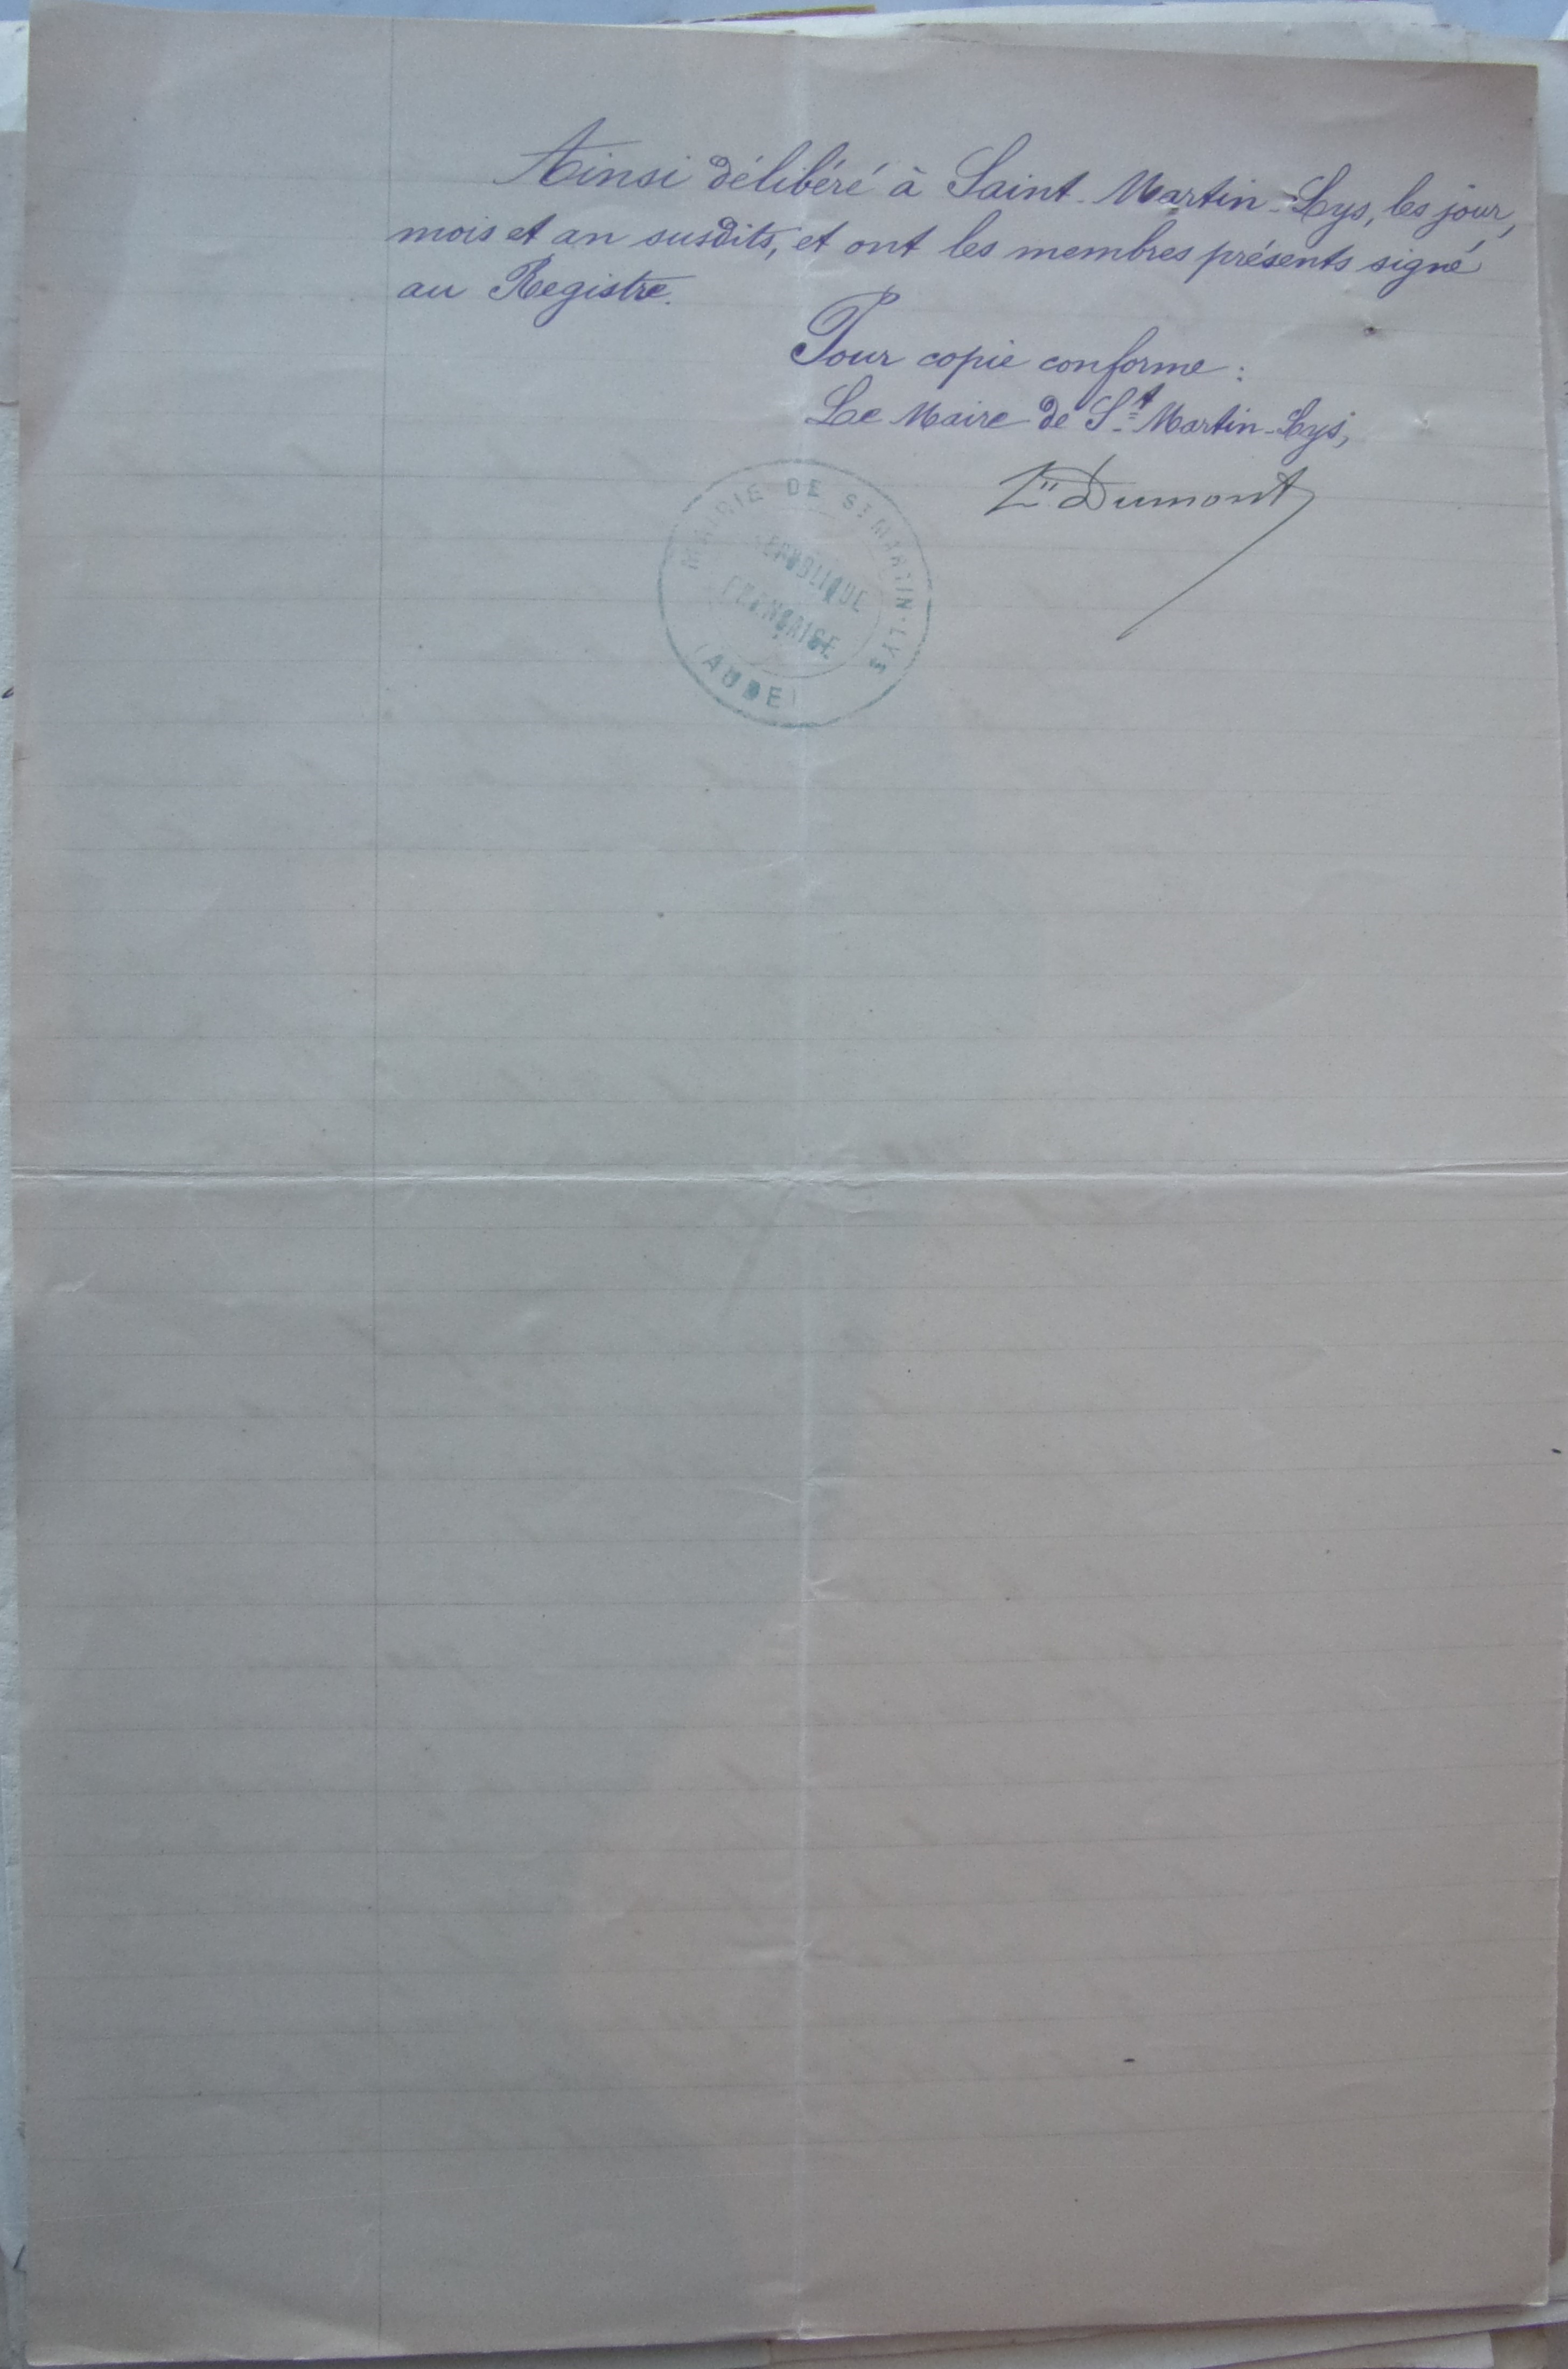 Ainsi délibéré à Saint-Martin-Lys, les jour,
mois et an susdits, et ont les membres présents signé
au Registre.
Pour copie conforme :
Le Maire de St Martin-Lys,
Dumont
MAIRIE DE ST MARTIN-LYS
RÉPUBLIQUE
FRANÇAISE
(AUDE)